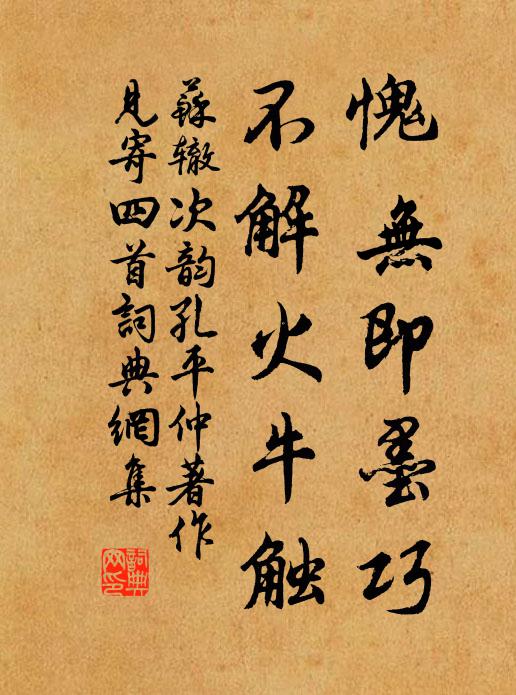 愧無即墨巧
不解火牛触
蘇辙次韵孔平仲著作
見寄四首詞典網集
詞典网印